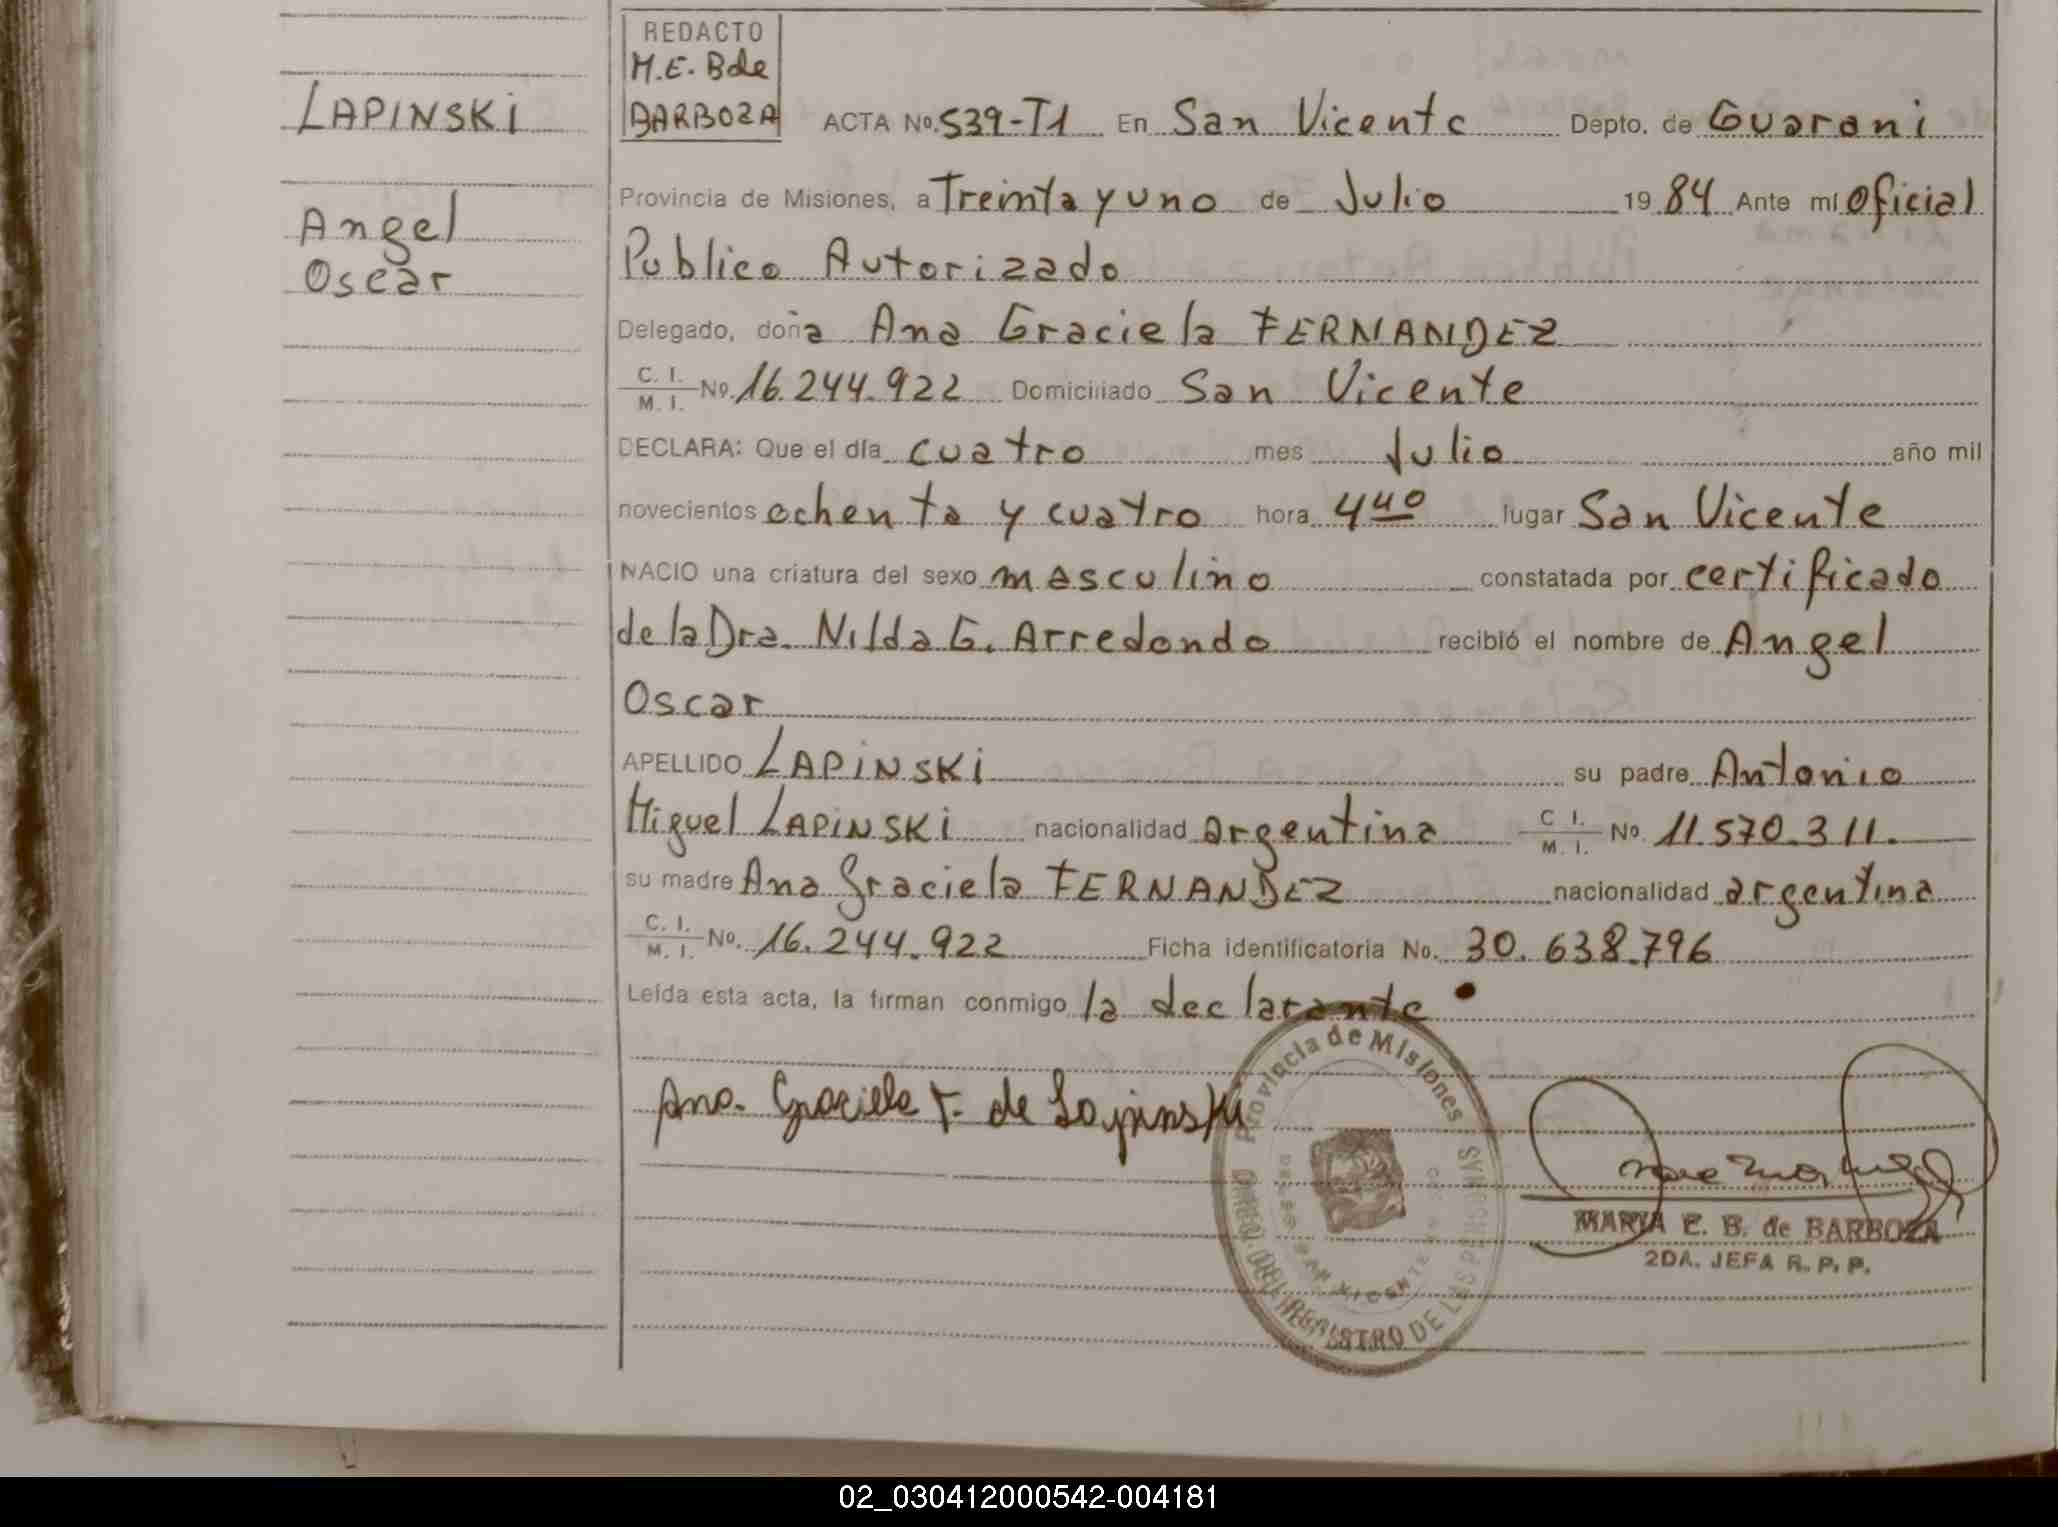 LAPINSKI
Angel
Oscar
REDACTO
M.E. B de
BARBOZA
ACTA No. 539-T1 En San Vicente Depto. de Guarani
Provincia de Misiones, a Treinta y uno de Julio 1984 Ante mí Oficial
Publico Autorizado
Delegado, doña Ana Graciela FERNANDEZ
C. I. / M. I. No. 16.244.922 Domiciliado San Vicente
DECLARA: Que el día cuatro mes Julio año mil
novecientos ochenta y cuatro hora 4 40 lugar San Vicente
NACIO una criatura del sexo masculino constatada por certificado
de la Dra. Nilda G. Arredondo recibió el nombre de Angel
Oscar
APELLIDO LAPINSKI su padre Antonio
Miguel LAPINSKI nacionalidad argentina C. I. / M. I. No. 11.570.311.
su madre Ana Graciela FERNANDEZ nacionalidad argentina
C. I. / M. I. No. 16.244.922 Ficha identificatoria No. 30.638.796
Leída esta acta, la firman conmigo la declarante
Ana Graciela F. de Lapinski
Provincia de Misiones
REGISTRO DE LAS PERSONAS
SAN VICENTE
MARIA E. B. de BARBOZA
2DA. JEFA R. P. P.
02_030412000542-004181